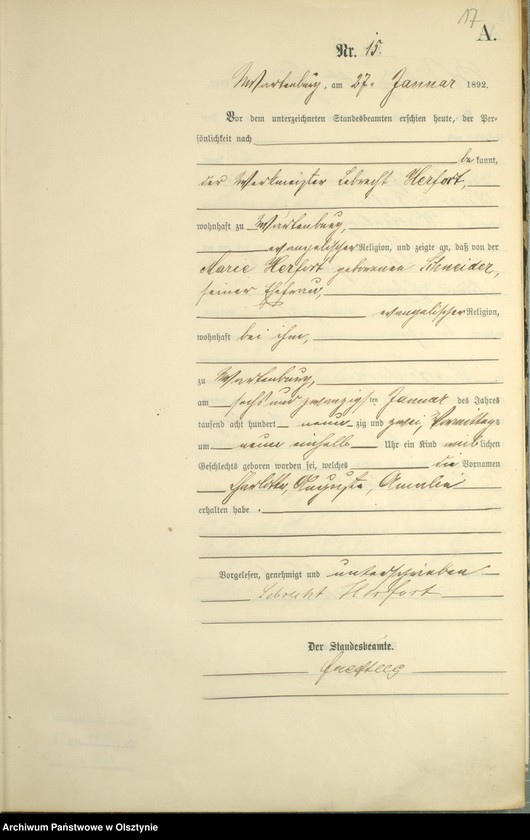 17
A.
Nr. 15.
Wartenburg, am 27. Januar 1892.
Vor dem unterzeichneten Standesbeamten erschien heute, der Per-
sönlichkeit nach
bekannt,
der Werkmeister Lebrecht Herfort,
wohnhaft zu Wartenburg,
evangelischer Religion, und zeigte an, daß von der
Marie Herfort geborenen Schneider,
seiner Ehefrau,
evangelischer Religion,
wohnhaft bei ihm,
zu Wartenburg,
am sechs und zwanzigsten Januar des Jahres
tausend acht hundert neunzig und zwei, Vormittags
um neun einhalb Uhr ein Kind weiblichen
Geschlechts geboren worden sei, welches die Vornamen
Charlotte, Auguste, Amalie
erhalten habe.
Vorgelesen, genehmigt und unterschrieben
Lebrecht Herfort
Der Standesbeamte.
Archiwum Państwowe w Olsztynie